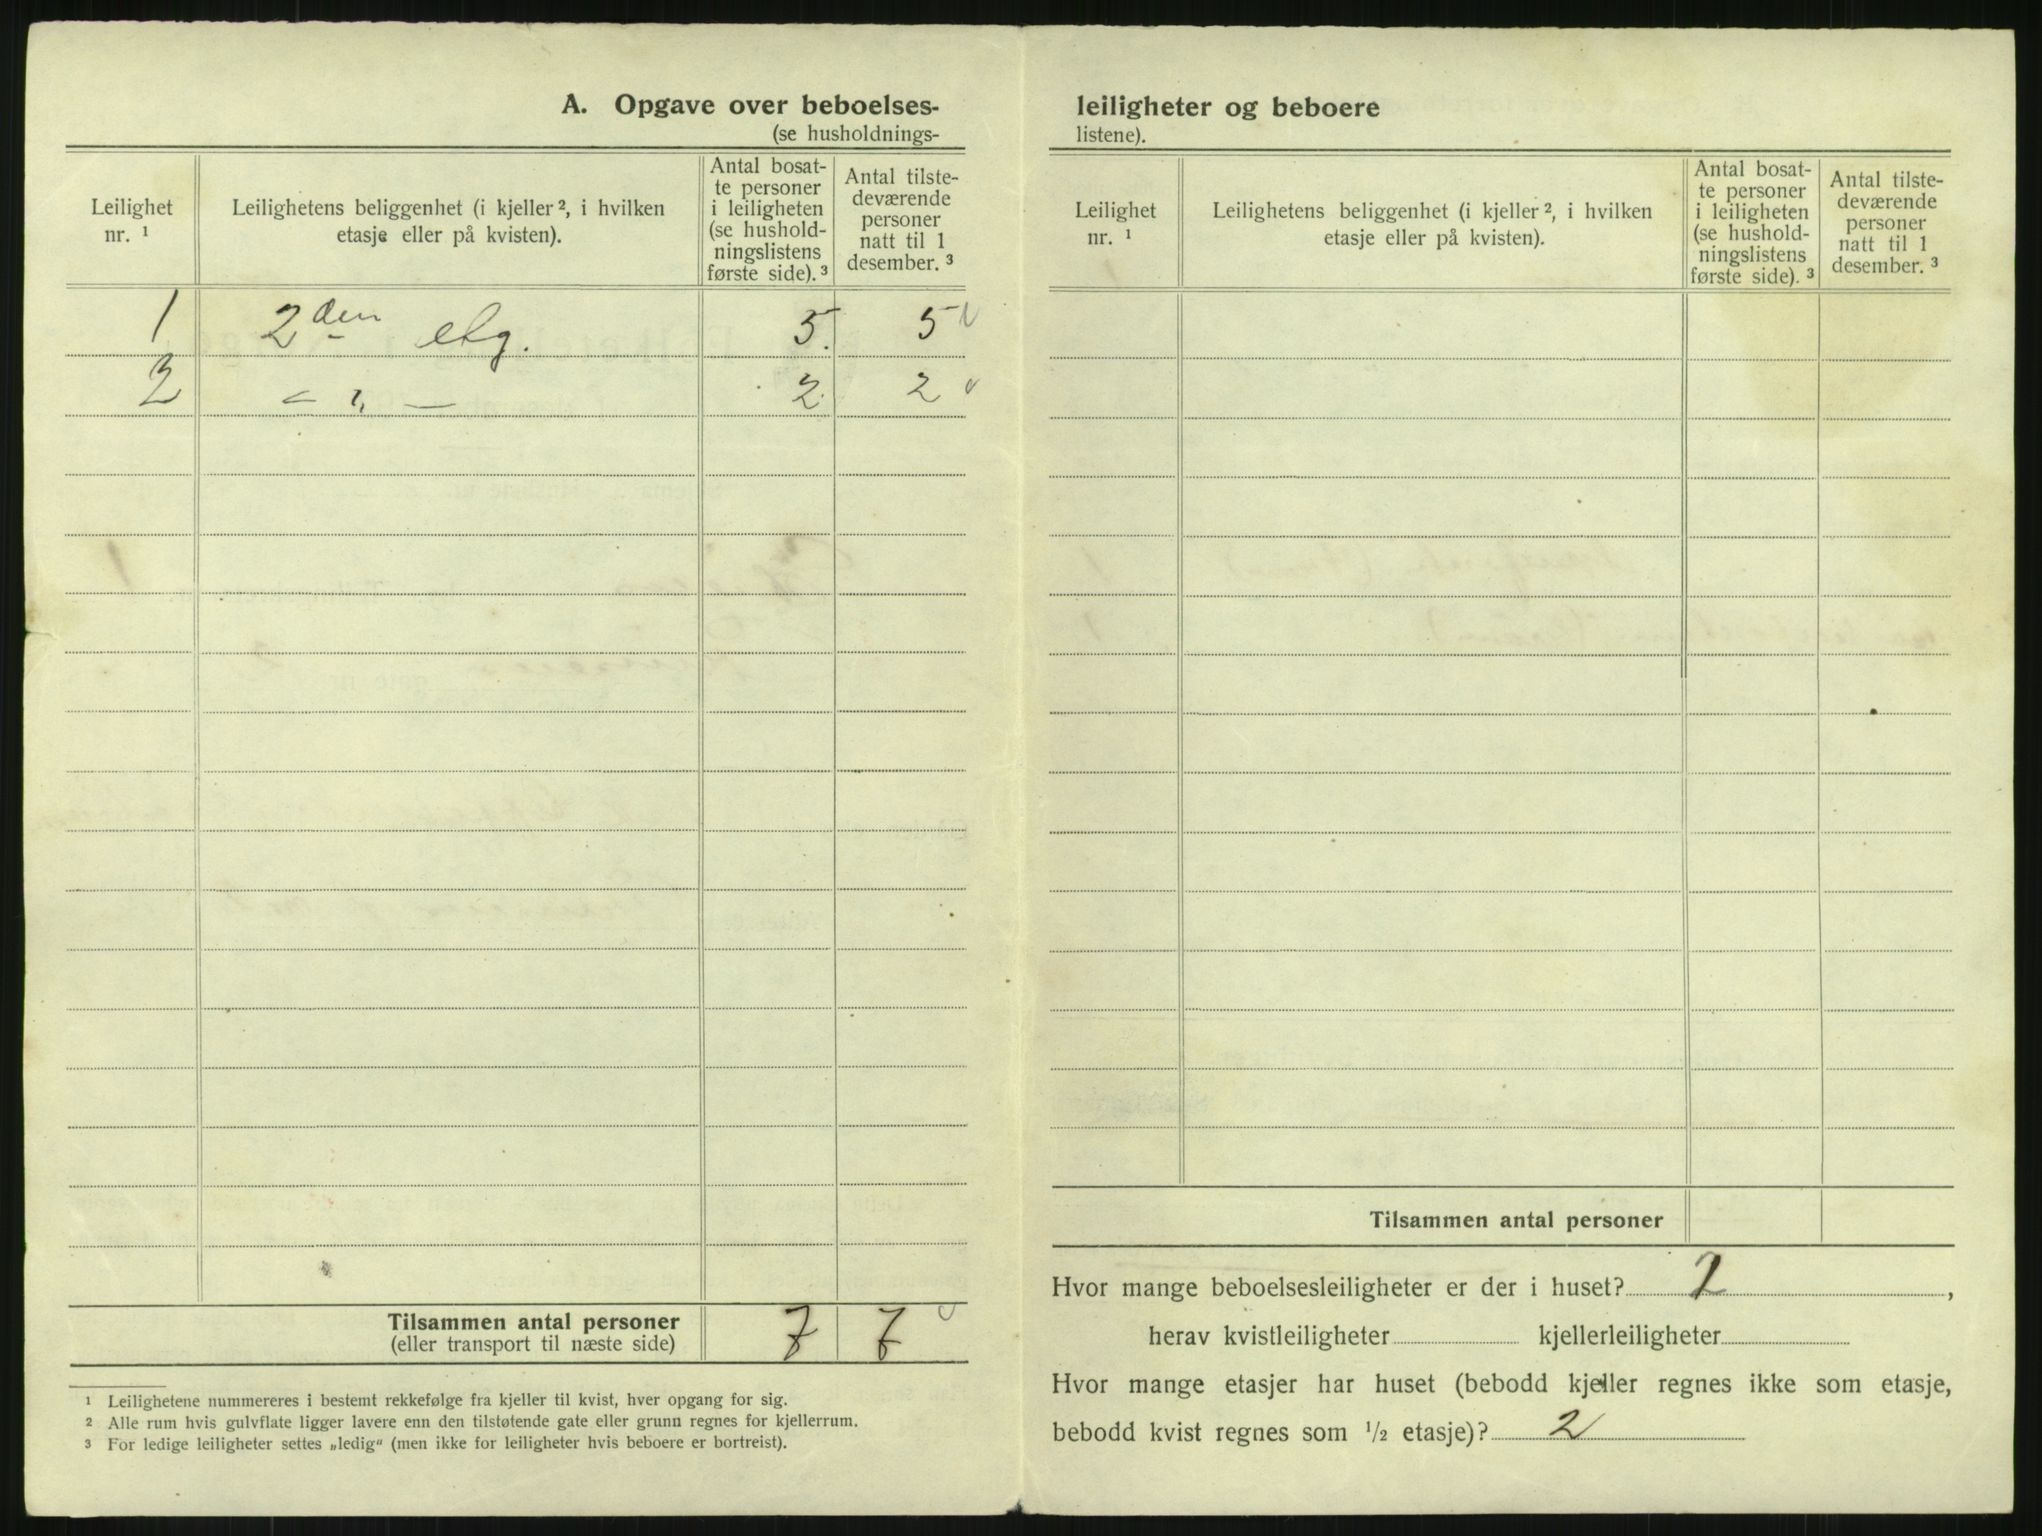 A. Opgave over beboelses-
(se husholdnings-
Leilighet nr. ¹
Leilighetens beliggenhet (i kjeller ², i hvilken etasje eller på kvisten).
Antal bosatte personer i leiligheten (se husholdningslistens første side). ³
Antal tilstedeværende personer natt til 1 desember. ³
1 2den etg. 5. 5
2 – „ – 2 2
Tilsammen antal personer 7 7
(eller transport til næste side)
¹ Leilighetene nummereres i bestemt rekkefølge fra kjeller til kvist, hver opgang for sig.
² Alle rum hvis gulvflate ligger lavere enn den tilstøtende gate eller grunn regnes for kjellerrum.
³ For ledige leiligheter settes „ledig“ (men ikke for leiligheter hvis beboere er bortreist).
leiligheter og beboere
listene).
Leilighet nr. ¹
Leilighetens beliggenhet (i kjeller ², i hvilken etasje eller på kvisten).
Antal bosatte personer i leiligheten (se husholdningslistens første side). ³
Antal tilstedeværende personer natt til 1 desember. ³
Tilsammen antal personer
Hvor mange beboelsesleiligheter er der i huset? 2,
herav kvistleiligheter kjellerleiligheter
Hvor mange etasjer har huset (bebodd kjeller regnes ikke som etasje,
bebodd kvist regnes som ½ etasje)? 2